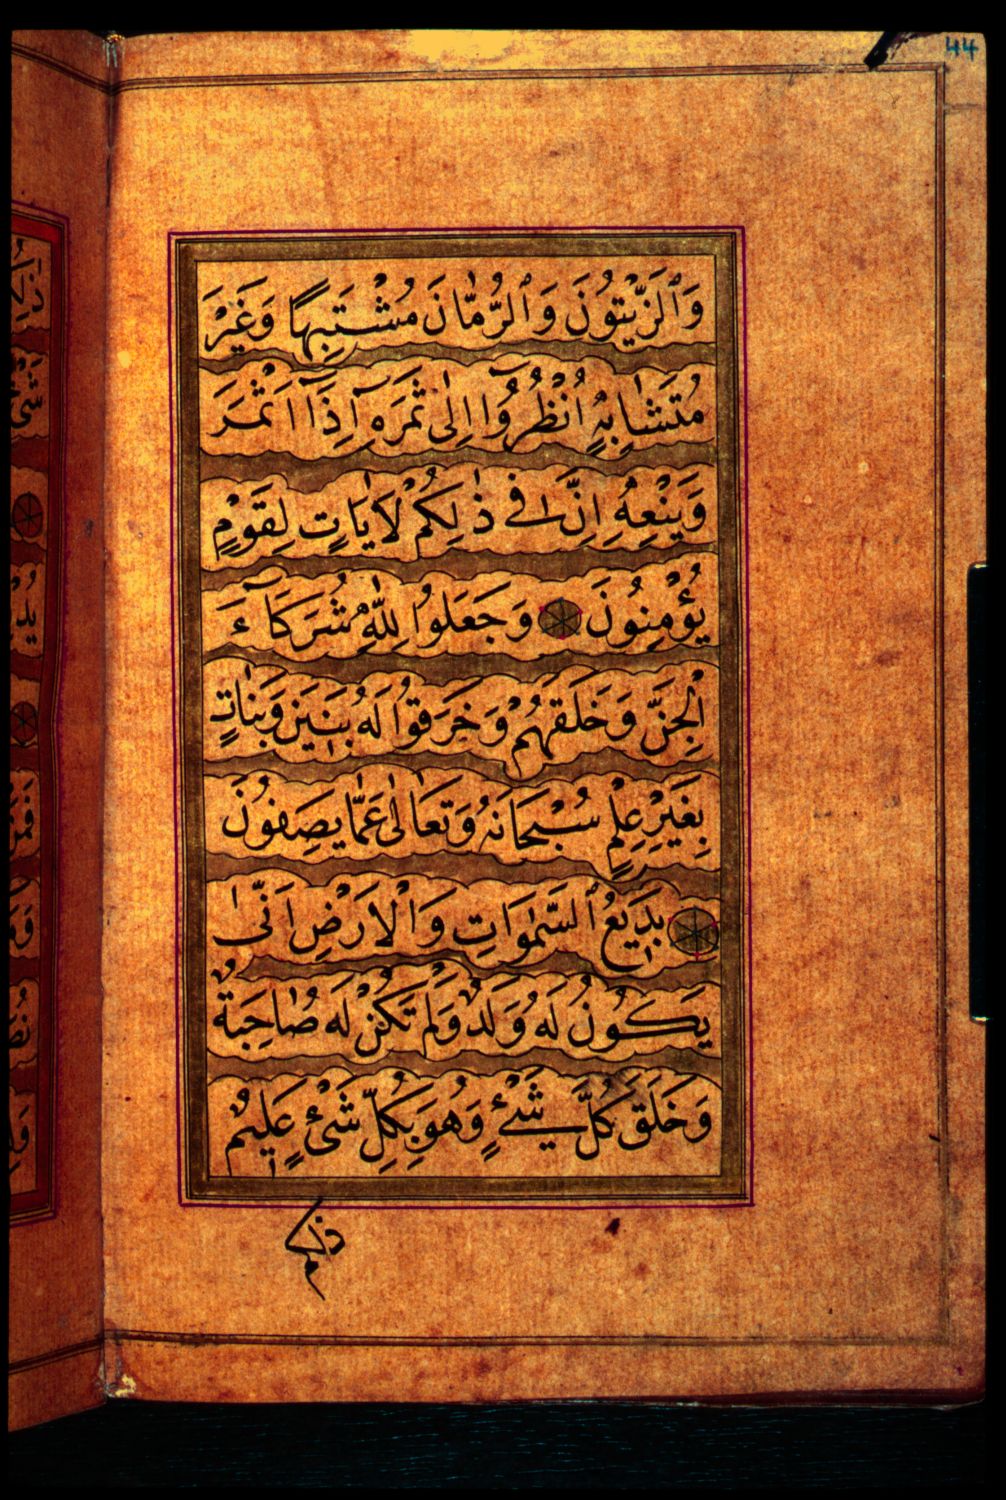 44
وَٱلزَّيْتُونَ وَٱلرُّمَّانَ مُشْتَبِهًا وَغَيْرَ
مُتَشَابِهٍ اُنْظُرُوٓا اِلٰى ثَمَرِهٖٓ اِذَٓا اَثْمَرَ
وَيَنْعِهٖ اِنَّ فٖى ذٰلِكُمْ لَاٰيَاتٍ لِقَوْمٍ
يُؤْمِنُونَ وَجَعَلُوا لِلّٰهِ شُرَكَٓاءَ
الْجِنَّ وَخَلَقَهُمْ وَخَرَقُوا لَهُ بَنٖينَ وَبَنَاتٍ
بِغَيْرِ عِلْمٍ سُبْحَانَهُ وَتَعَالٰى عَمَّا يَصِفُونَ
بَدٖيعُ ٱلسَّمٰوَاتِ وَالْاَرْضِ اَنّٰى
يَكُونُ لَهُ وَلَدٌ وَلَمْ تَكُنْ لَهُ صَاحِبَةٌ
وَخَلَقَ كُلَّ شَیْءٍ وَهُوَ بِكُلِّ شَیْءٍ عَلٖيمٌ
ذلكم